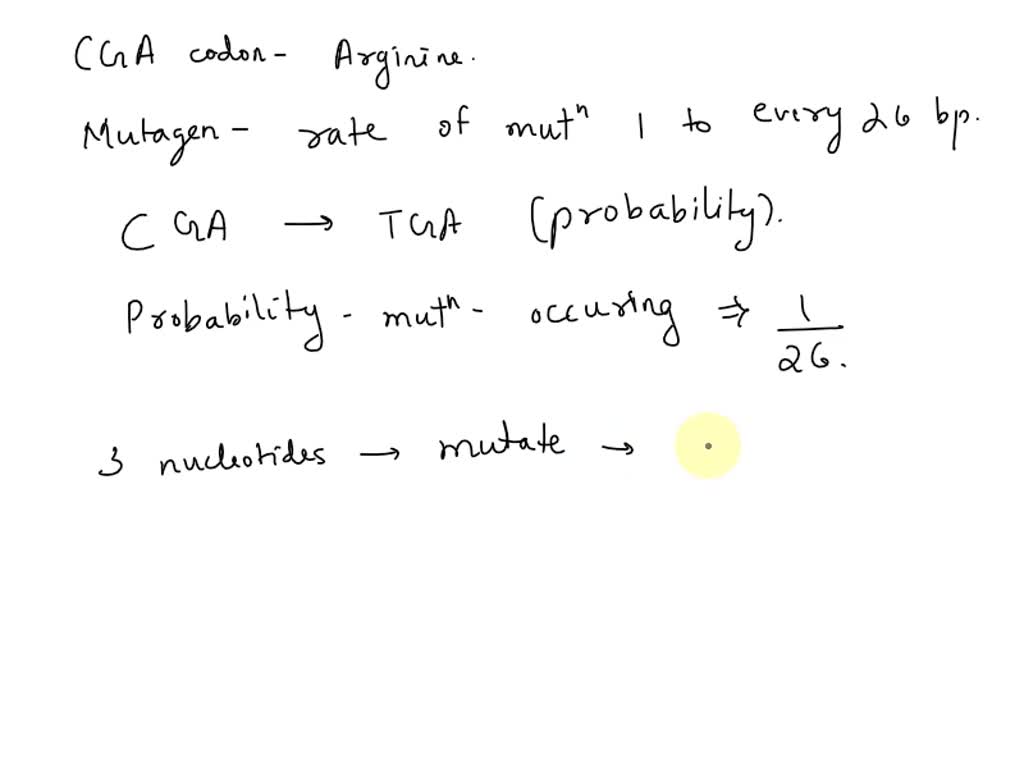 CGA codon - Arginine.
Mutagen - rate of mutⁿ 1 to every 26 bp.
CGA → TGA (probability).
Probability - mutⁿ - occuring ⇒ 1/26.
3 nucleotides → mutate →